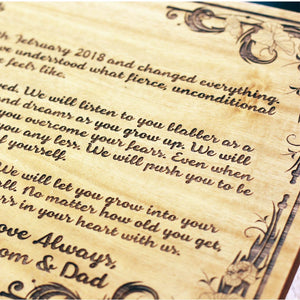 th February 2018 and changed everything.
ve understood what fierce, unconditional
e feels like.
ed. We will listen to you blabber as a
and dreams as you grow up. We will
you overcome your fears. Even when
you any less. We will push you to be
f yourself.
We will let you grow into your
all. No matter how old you get,
rs in your heart with us.
ove Always,
om & Dad